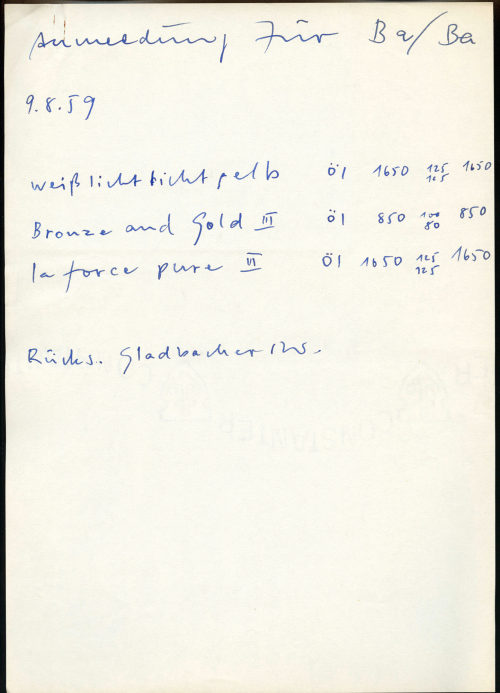 Anmeldung für Ba/Ba
9.8.59
weißlichtlichtgelb Öl 1650 125 1650
125
Bronze and Gold III Öl 850 100 850
80
la force pure III Öl 1650 125 1650
125
Rücks. Gladbacher